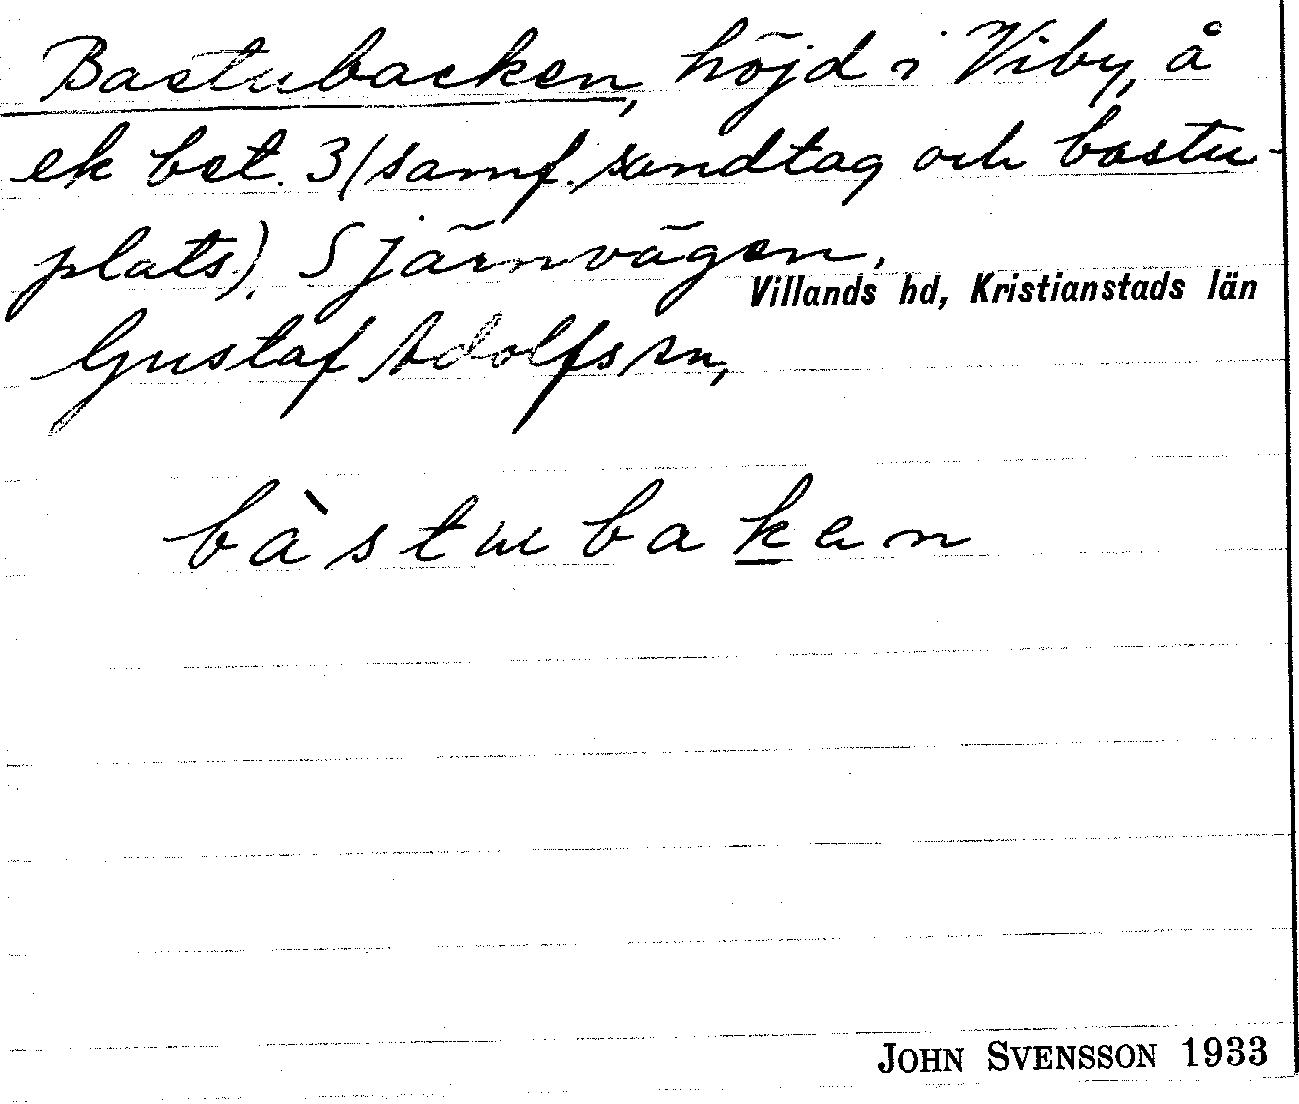 Bastubacken, höjd i Viby, å
ek bet. 3 (samf. sandtag och bastu-
plats). S järnvägen.
Villands hd, Kristianstads län
Gustaf Adolfssn,
bàstubaken
JOHN SVENSSON 1933